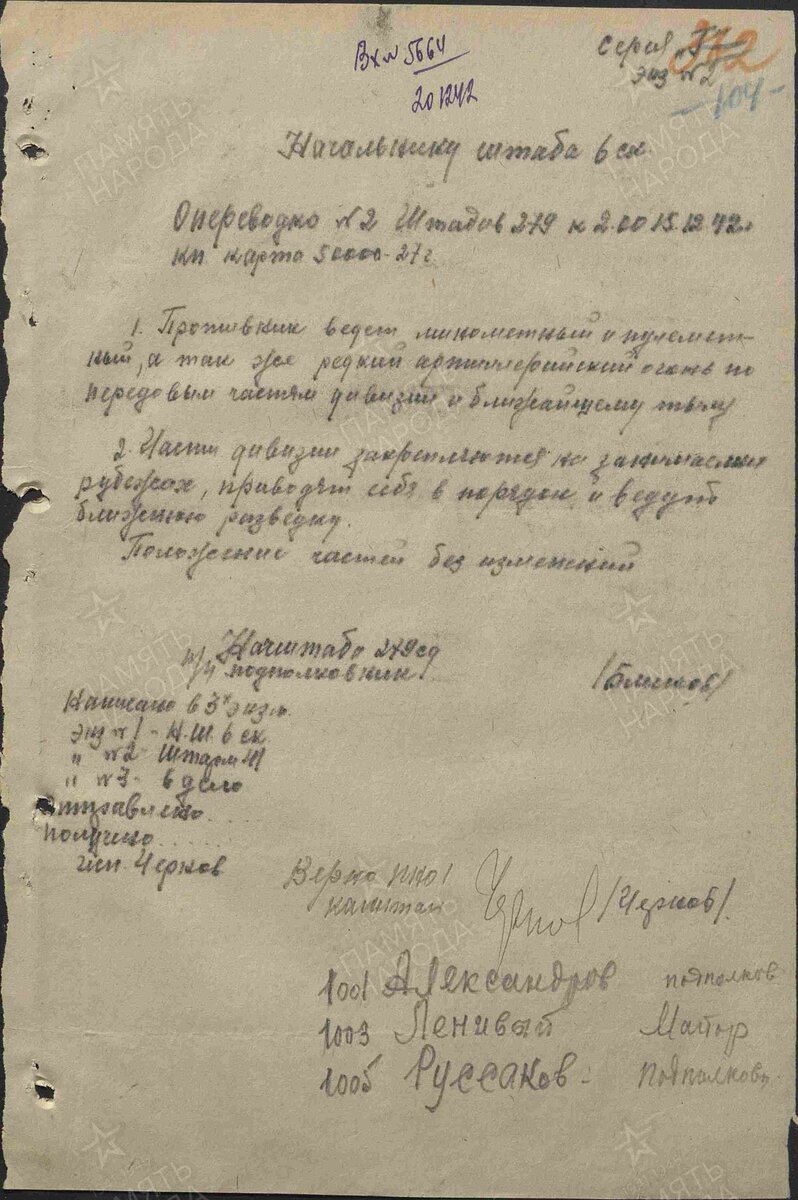 Вх № 5664
20 12 42
серия
экз № 2
372
104
Начальнику штаба 6 ск.
Опереводко № 2 Штадив 279 к 2.00 15.12.42г
кп карта 50000-27г.
1. Противник ведет минометный и пулемет-
ный, а так же редкий артиллерийский огонь по
передовым частям дивизии и ближайшему тылу
2. Части дивизии закрепляются на занимаемых
рубежах, приводят себя в порядок и ведут
ближнюю разведку.
Положение частей без изменений
Начштаба 279 сд
п/п подполковник
Написано в 3х экз.
экз № 1 - Н.Ш. 6 ск
" № 2 - Штарм 41
" № 3 - в дело
отправлено......
получено......
исп. Черков
Верно пно1
капитан
/Черков/.
1001 Александров подполков
1003 Ленивый Майор
1005 Руссаков - подполковн.
ПАМЯТЬ НАРОДА